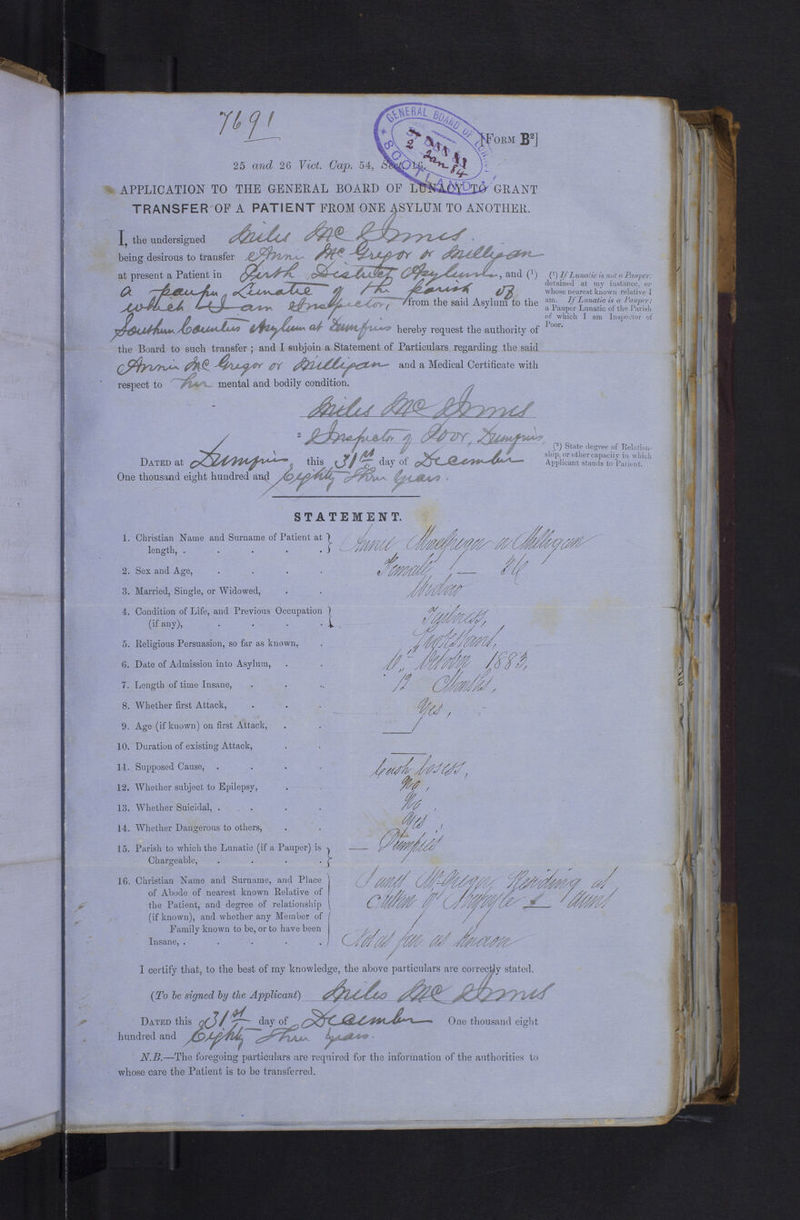 7691
GENERAL BOARD OF
2 Jan 84
SCOTLAND
[FORM B²]
25 and 26 Vict. Cap. 54,
APPLICATION TO THE GENERAL BOARD OF LUNACY TO GRANT
TRANSFER OF A PATIENT FROM ONE ASYLUM TO ANOTHER.
I, the undersigned Miles McInnes
being desirous to transfer Annie McGregor or Milligan
at present a Patient in Perth District Asylum, and (¹)
a pauper Lunatic of the parish of
which I am Inspector, from the said Asylum to the
Southern Counties Asylum at Dumfries hereby request the authority of
the Board to such transfer ; and I subjoin a Statement of Particulars regarding the said
Annie McGregor or Milligan and a Medical Certificate with
respect to her mental and bodily condition.
(¹) If Lunatic is not a Pauper:
detained at my instance, or
whose nearest known relative I
am. If Lunatic is a Pauper:
a Pauper Lunatic of the Parish
of which I am Inspector of
Poor.
Miles McInnes
² Inspector of Poor, Dumfries
DATED at Dumfries, this 31st day of December
One thousand eight hundred and Eighty Three years.
(²) State degree of Relation-
ship, or other capacity in which
Applicant stands to Patient.
STATEMENT.
1. Christian Name and Surname of Patient at
length, . Annie MacGregor or Milligan
2. Sex and Age, Female —
3. Married, Single, or Widowed, Widow
4. Condition of Life, and Previous Occupation
(if any), Tailoress,
5. Religious Persuasion, so far as known, Protestant,
6. Date of Admission into Asylum, October 1883,
7. Length of time Insane, 12 Months,
8. Whether first Attack, Yes,
9. Age (if known) on first Attack, —
10. Duration of existing Attack, —
11. Supposed Cause, losses,
12. Whether subject to Epilepsy, No,
13. Whether Suicidal, No,
14. Whether Dangerous to others, Yes,
15. Parish to which the Lunatic (if a Pauper) is
Chargeable, — Dumfries
16. Christian Name and Surname, and Place
of Abode of nearest known Relative of
the Patient, and degree of relationship
(if known), and whether any Member of
Family known to be, or to have been
Insane, .
McGregor, Residing at
Aunt
Not as far as known
I certify that, to the best of my knowledge, the above particulars are correctly stated.
(To be signed by the Applicant) Miles McInnes
DATED this 31st day of December One thousand eight
hundred and Eighty Three years.
N.B.—The foregoing particulars are required for the information of the authorities to
whose care the Patient is to be transferred.